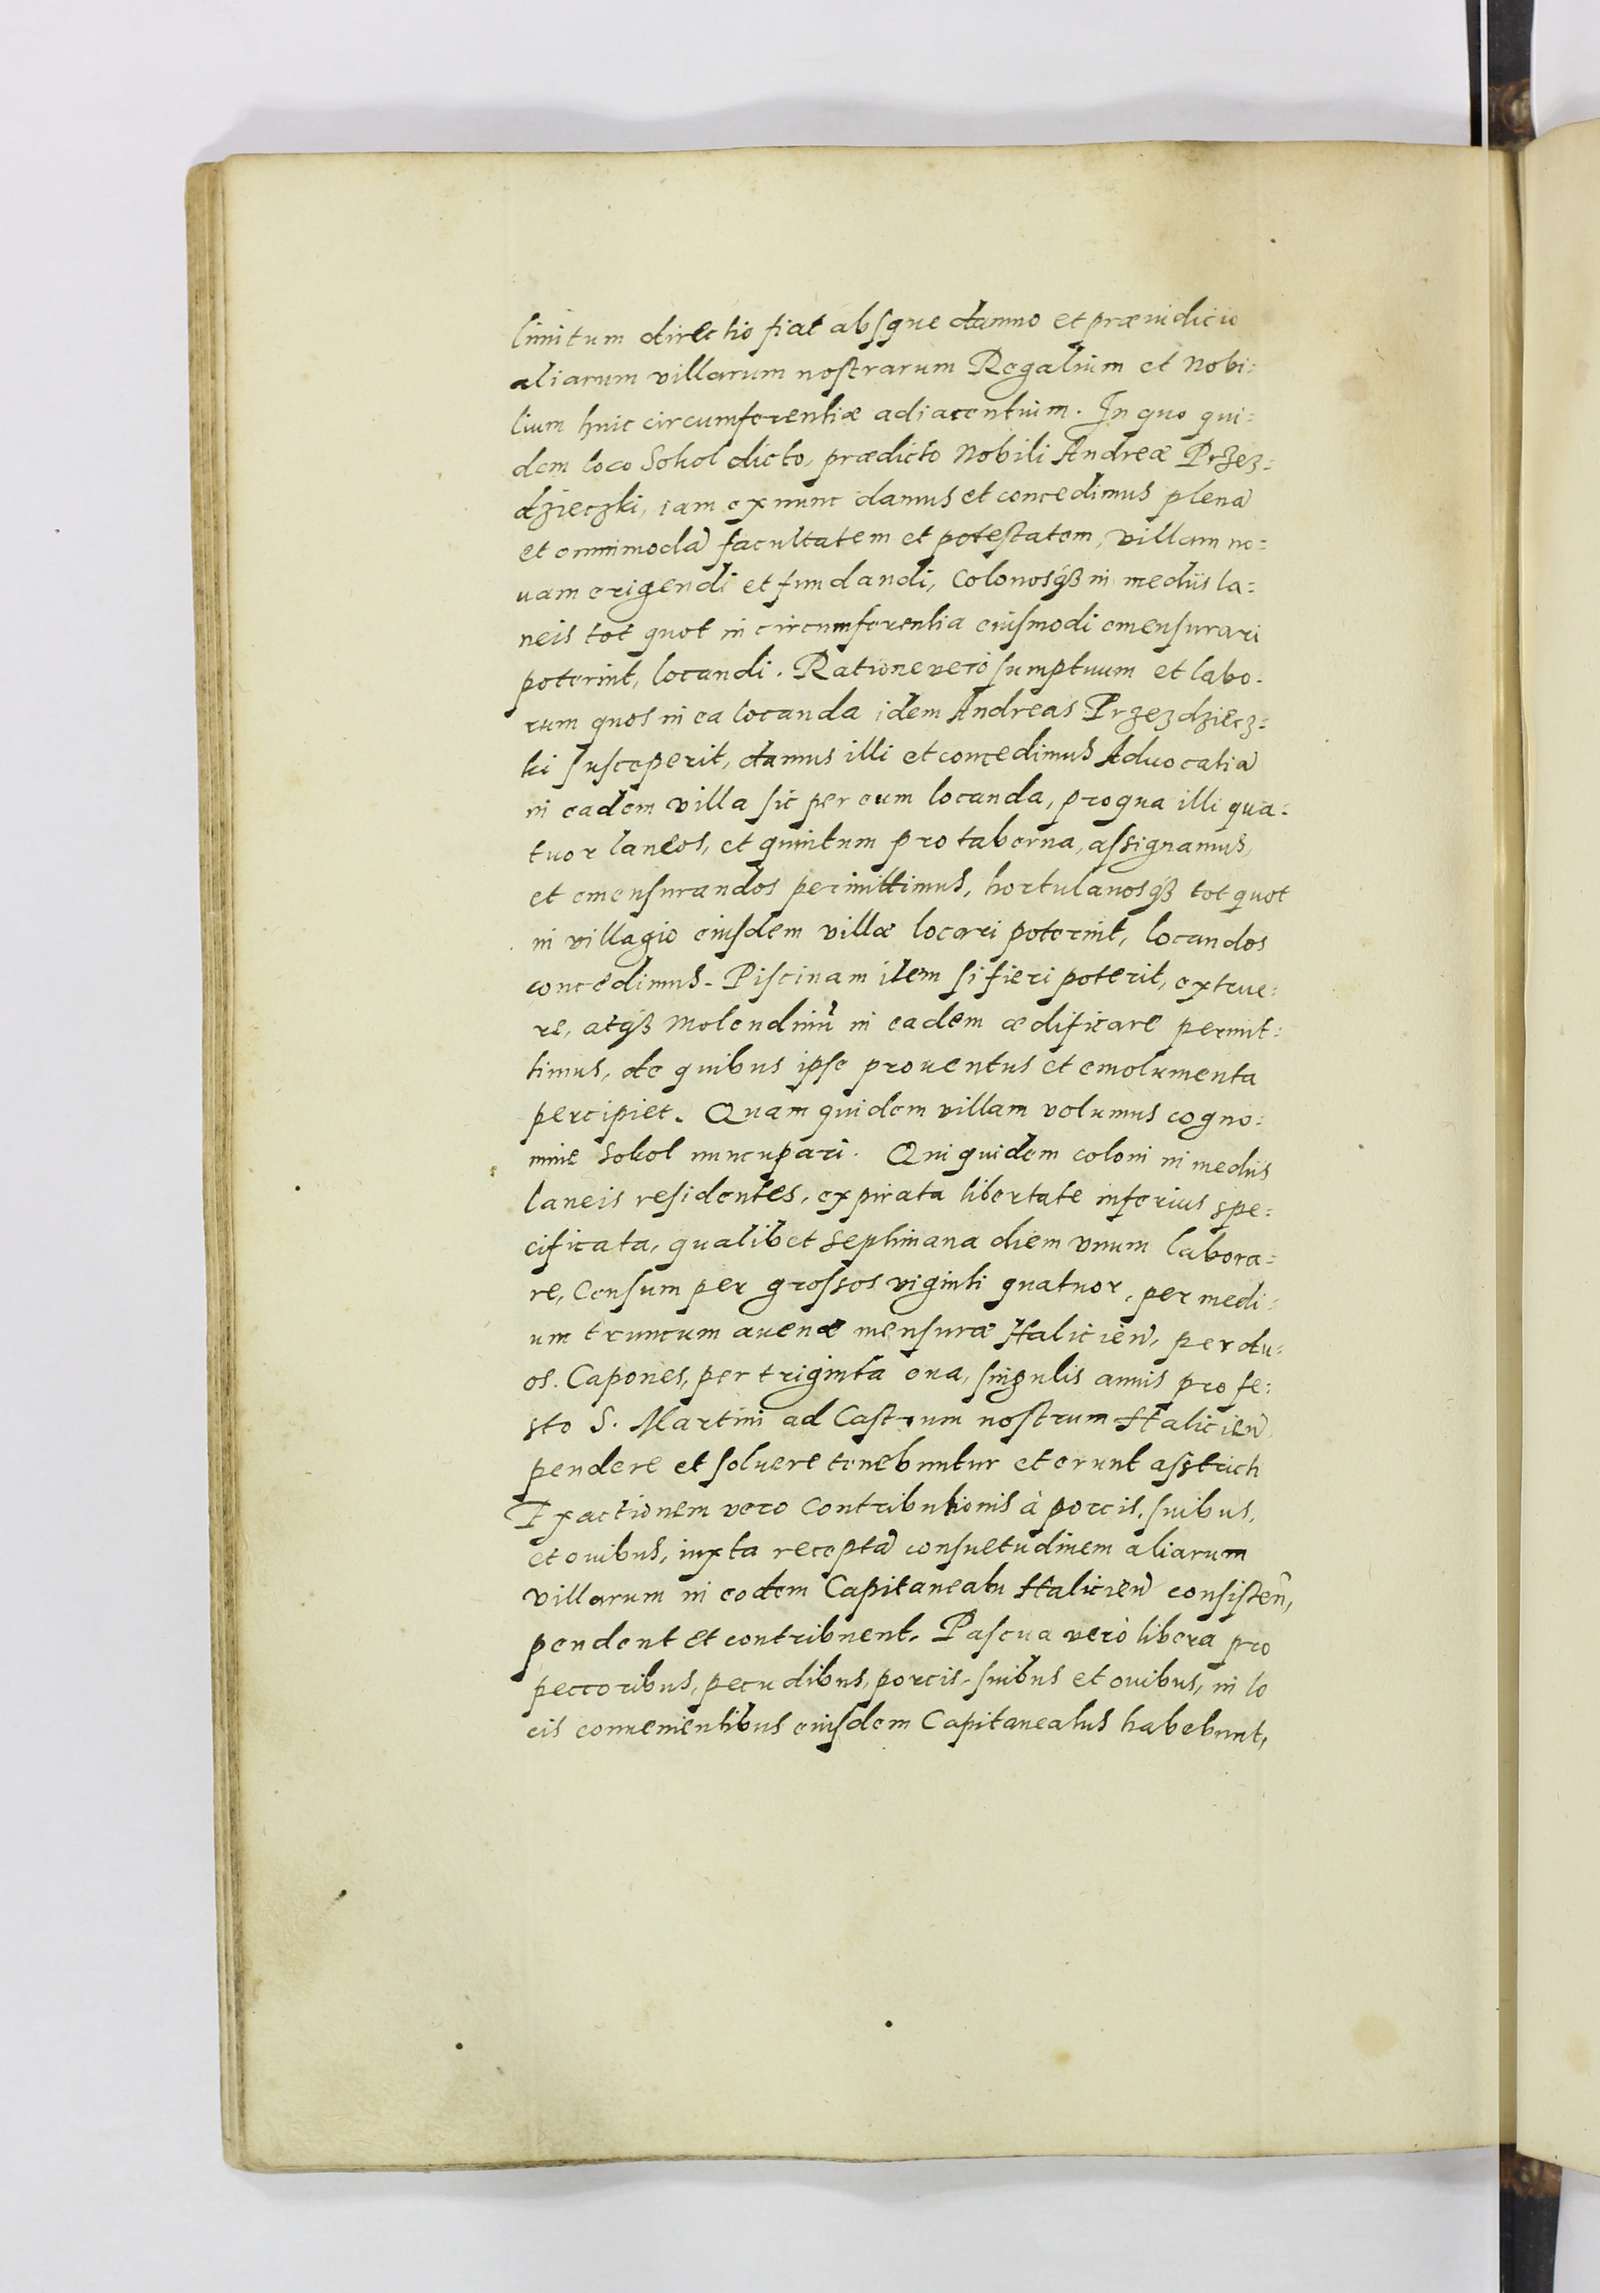 limitum directio fiat absque damno et præiudicio
aliarum villarum nostrarum Regalium et Nobi:
lium huic circumferentiæ adiacentium. In quo qui:
dem loco Sokol dicto, prædicto Nobili Andreæ Przez:
dzieczki, iam ex nunc damus et concedimus plenã
et omnimodã facultatem et potestatem, villam no:
uam erigendi et fundandi, Colonosq́ß in mediis la:
neis tot quot in circumferentia eiusmodi emensurari
poterint, locandi. Ratione verò sumptuum et labo-
rum quos in ea locanda idem Andreas Przezdziecz:
ki susceperit, damus illi et concedimus Aduocatiã
in eadem villa sic per eum locanda, pro qua illi qua:
tuor laneos, et quintum pro taberna, assignamus,
et emensurandos permittimus, hortulanosq́ß tot quot
in villagio eiusdem villæ locari poterint, locandos
concedimus. Piscinam item si fieri poterit, extrue:
re, atq́ß Molendinũ in eadem ædificare permit:
timus, de quibus ipse prouentus et emolumenta
percipiet. Quam quidem villam volumus cogno:
mine Sokol nuncupari. Qui quidem coloni in mediis
laneis residentes, expirata libertate inferius spe:
cificata, qualibet septimana diem vnum labora:
re, Censum per grossos viginti quatuor, per medi:
um truncum auenæ mensuræ Halicieñ, per du:
os. Capones, per triginta oua, singulis annis pro fe:
sto S. Martini ad Castrum nostrum Halicieñ
pendere et soluere tenebuntur et erunt astricti
Exactionem vero Contributionis à porcis, suibus,
et ouibus, iuxta receptã consuetudinem aliarum
villarum in eodem Capitaneatu Halicieñ consisteñ,
pendent et contribuent. Pascua verò libera pro
peccoribus, pecudibus, porcis, suibus et ouibus, in lo
cis conuenientibus eiusdem Capitaneatus habebunt,